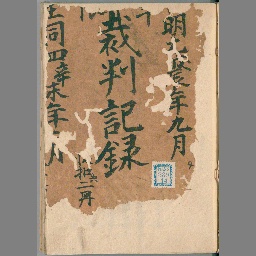 明治壱年九月
裁判記録
至同四辛未年 月
拾二冊